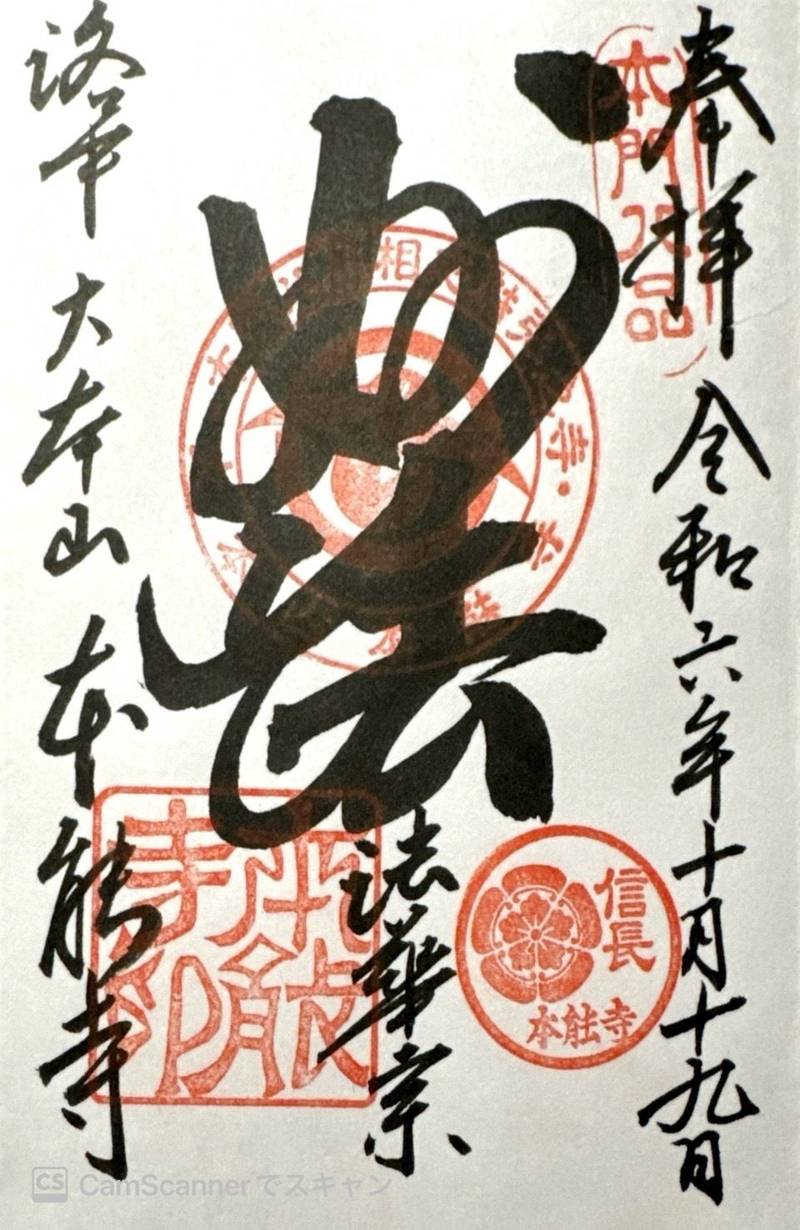 奉拝 令和六年十月十九日
本門八品
妙法
法華宗
信長
本能寺
洛中 大本山 本能寺
本能寺印
CS CamScannerでスキャン